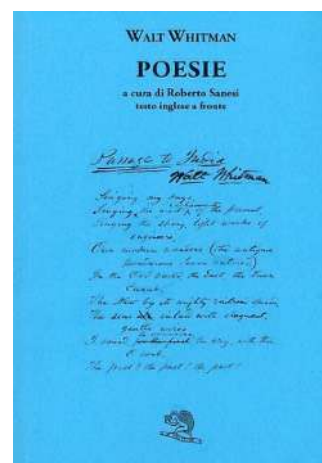 WALT WHITMAN
POESIE
a cura di Roberto Sanesi
testo inglese a fronte
Passage to India
Walt Whitman
Singing my days,
Singing the great of the present,
Singing the strong, light works of
engineers,
Our modern wonders (the antique
ponderous Seven outvied)
In the Old World, the East, the Suez
Canal,
The New by its mighty railroad
The seas inlaid with eloquent,
gentle wires
I sound, to commence, the cry, with thee
O soul,
The Past! the Past! the Past!